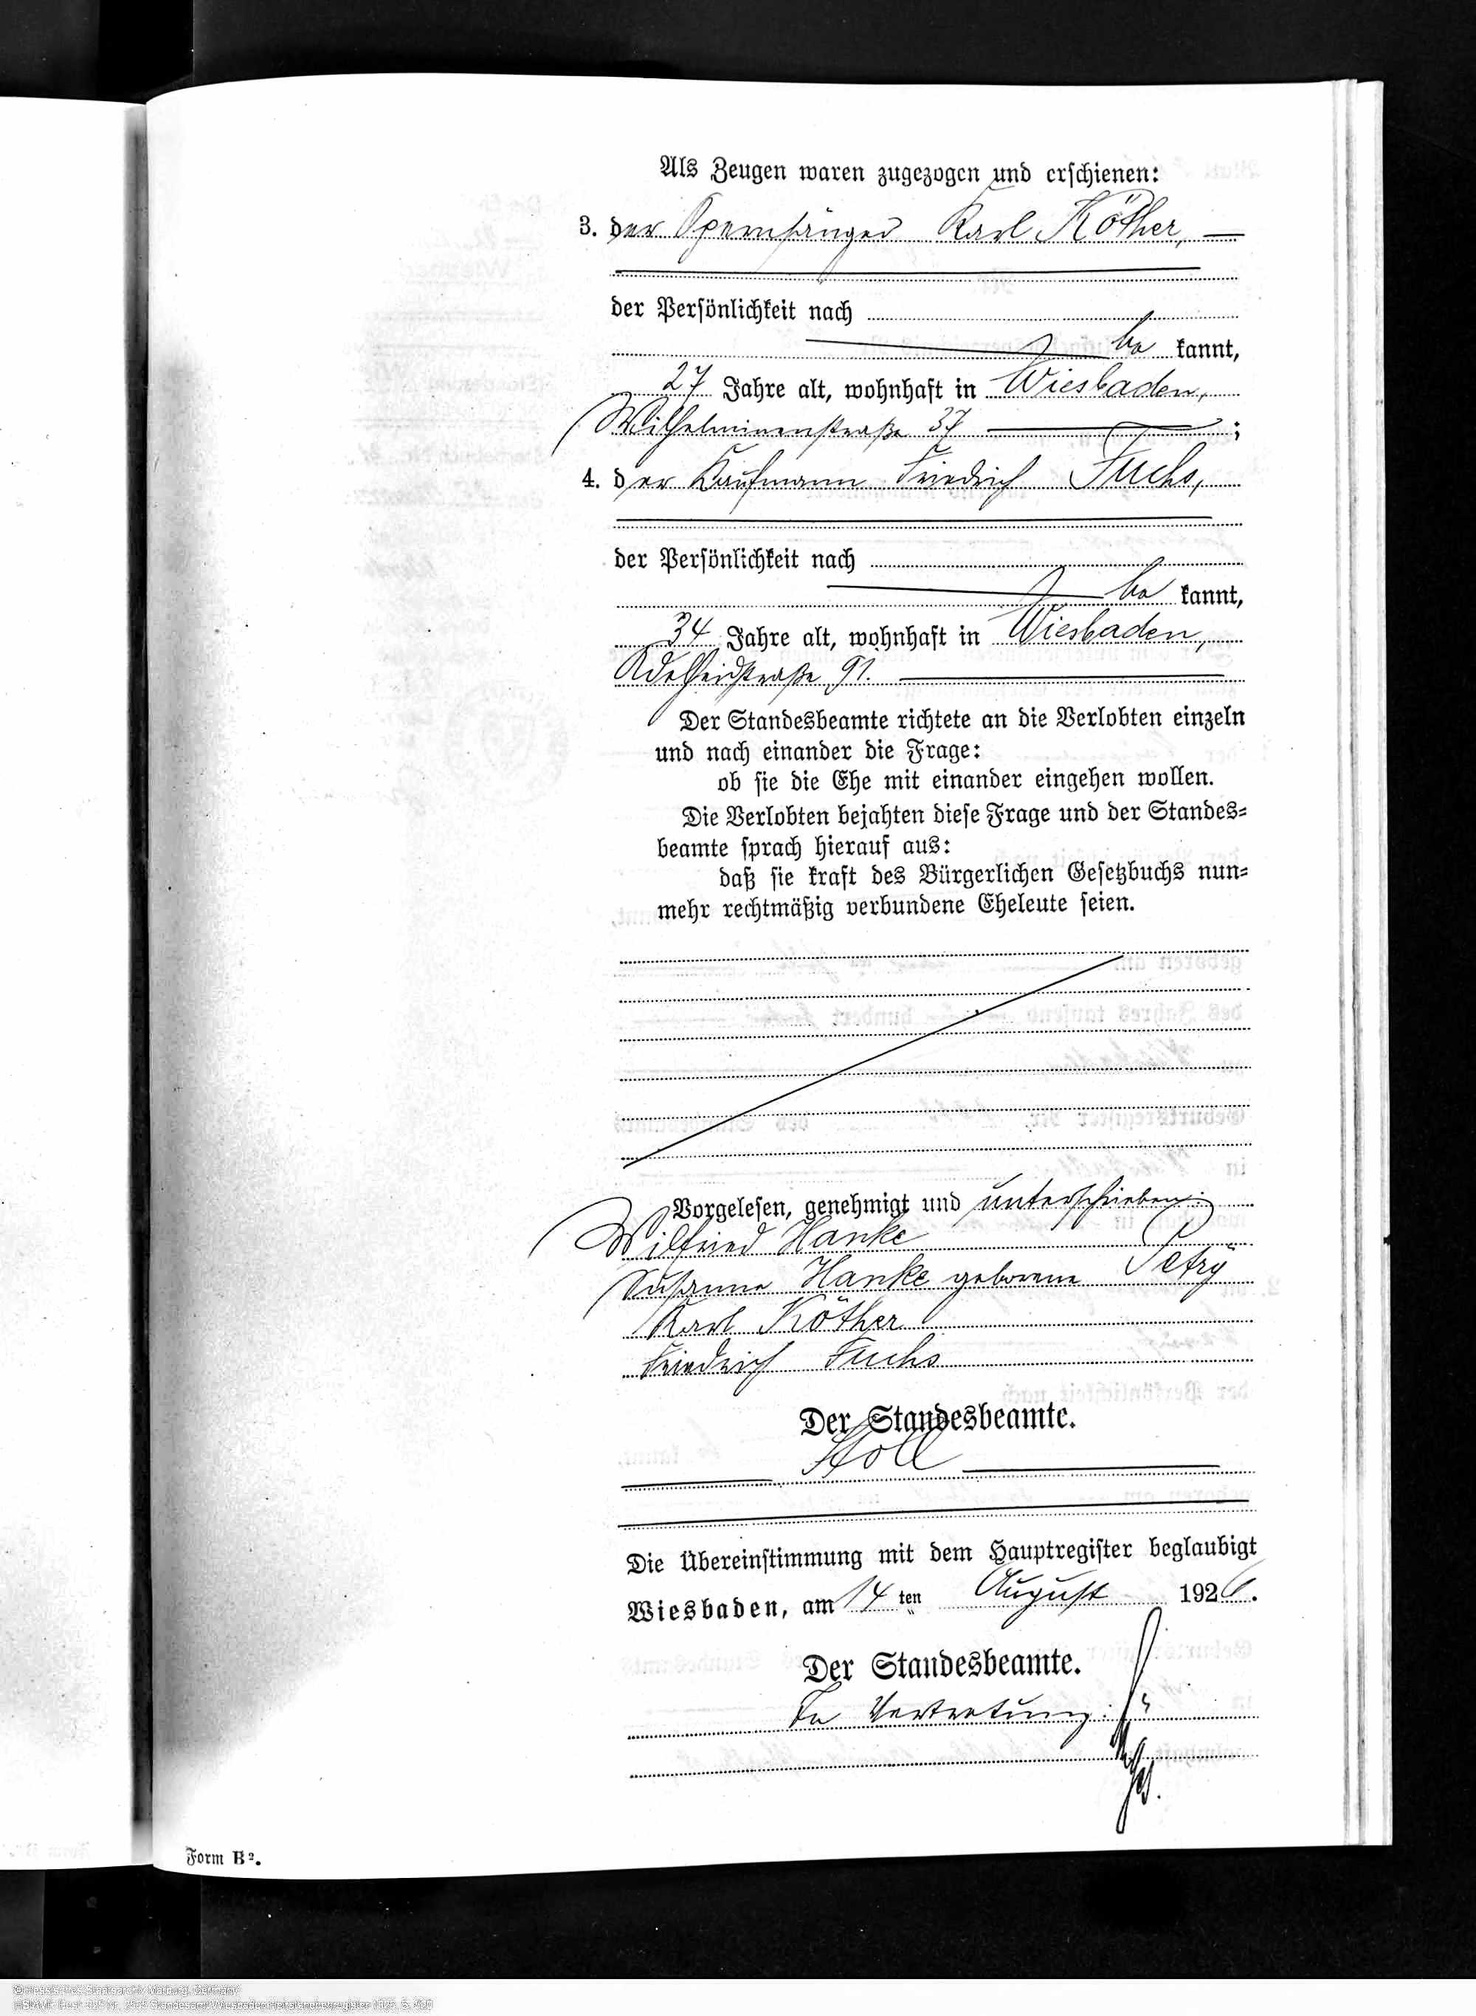 Als Zeugen waren zugezogen und erschienen:
3. der Opernsänger Karl Köther,
der Persönlichkeit nach
be kannt,
27 Jahre alt, wohnhaft in Wiesbaden,
Wilhelminenstraße 37 ;
4. der Kaufmann Friedrich Fuchs,
der Persönlichkeit nach
be kannt,
34 Jahre alt, wohnhaft in Wiesbaden,
Adelheidstraße 91.
Der Standesbeamte richtete an die Verlobten einzeln
und nach einander die Frage:
ob sie die Ehe mit einander eingehen wollen.
Die Verlobten bejahten diese Frage und der Standes-
beamte sprach hierauf aus:
daß sie kraft des Bürgerlichen Gesetzbuchs nun-
mehr rechtmäßig verbundene Eheleute seien.
Vorgelesen, genehmigt und unterschrieben:
Wilfried Hanke
Susanna Hanke geborene Petrÿ
Karl Köther
Friedrich Fuchs
Der Standesbeamte.
Stoll
Die Übereinstimmung mit dem Hauptregister beglaubigt
Wiesbaden, am 14 ten August 1926.
Der Standesbeamte.
In Vertretung:
Form B².